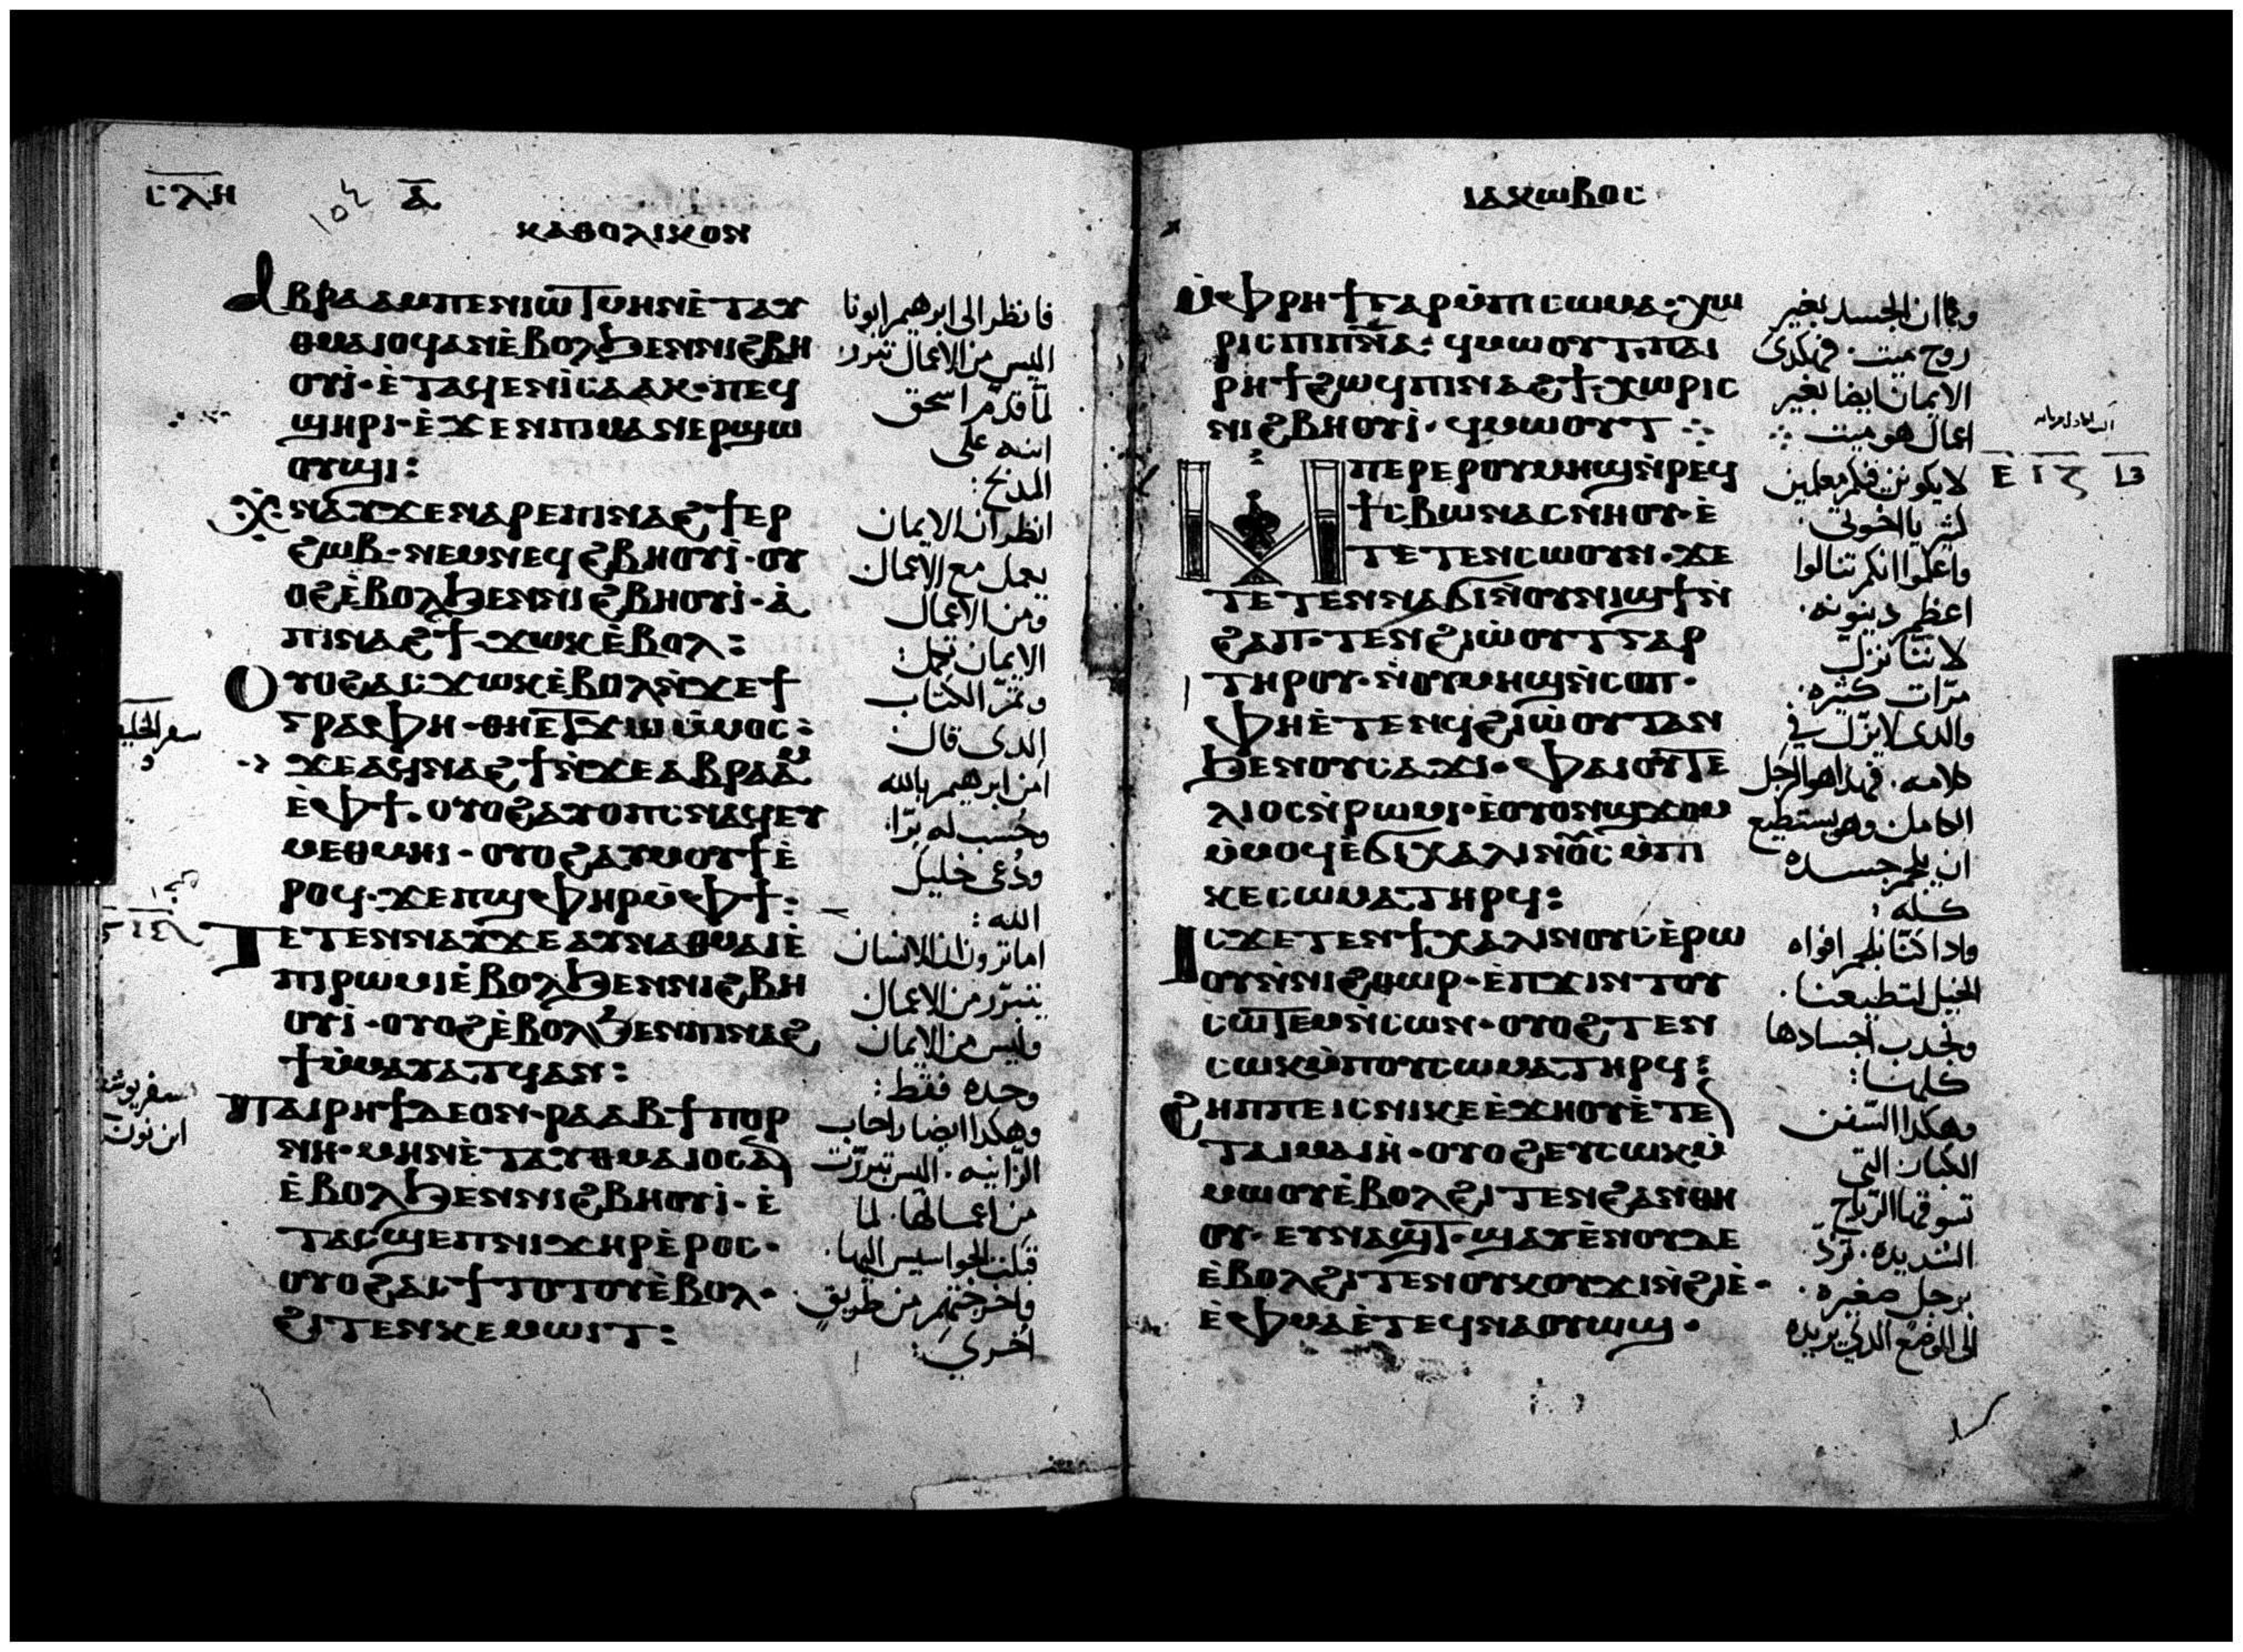 ⲥⲗⲏ ⲁ̅
ⲕⲁⲑⲟⲗⲓⲕⲟⲛ
ⲁⲃⲣⲁⲁⲙ ⲡⲉⲛⲓⲱⲧ ⲙⲏ ⲛⲉ̀ⲧⲁⲩ
ⲑⲙⲁⲓⲟϥ ⲁⲛ ⲉ̀ⲃⲟⲗϧⲉⲛ ⲛⲓϩⲃⲏ
ⲟⲩⲓ̀· ⲉ̀ⲧⲁϥⲉⲛ ⲓ̀ⲥⲁⲁⲕ· ⲡⲉϥ
ϣⲏⲣⲓ· ⲉ̀ϫⲉⲛ ⲡⲓⲙⲁⲛⲉⲣϣⲱ
ⲟⲩϣⲓ:
ⲭⲛⲁⲩ ϫⲉ ⲛⲁⲣⲉ ⲡⲓⲛⲁϩϯ ⲉⲣ
ϩⲱⲃ· ⲛⲉⲙ ⲛⲉϥϩⲃⲏⲟⲩⲓ̀· ⲟⲩ
ⲟϩ ⲉ̀ⲃⲟⲗϧⲉⲛ ⲛⲓϩⲃⲏⲟⲩⲓ̀· ⲁ̀
ⲡⲓⲛⲁϩϯ· ϫⲱⲕ ⲉ̀ⲃⲟⲗ:
ⲟⲩⲟϩ ⲁⲥϫⲱⲕ ⲉ̀ⲃⲟⲗ ⲛ̀ϫⲉ ϯ
ⲅⲣⲁⲫⲏ· ⲑⲏⲉⲧϫⲱ ⲙ̀ⲙⲟⲥ:
ϫⲉ ⲁϥⲛⲁϩϯ ⲛ̀ϫⲉ ⲁⲃⲣⲁⲁⲙ
ⲉ̀ⲫϯ. ⲟⲩⲟϩ ⲁⲩⲟⲡⲥ ⲛⲁϥ ⲉⲩ
ⲙⲉⲑⲙⲏⲓ· ⲟⲩⲟϩ ⲁⲩⲙⲟⲩϯ ⲉ̀
ⲣⲟϥ· ϫⲉ ⲡϣⲫⲏⲣ ⲙ̀ⲫϯ:
ⲧⲉⲧⲉⲛⲛⲁⲩ ϫⲉ ⲁⲩⲛⲁⲑⲙⲁⲓⲉ̀
ⲡⲓⲣⲱⲙⲓ ⲉ̀ⲃⲟⲗϧⲉⲛ ⲛⲓϩⲃⲏ
ⲟⲩⲓ̀· ⲟⲩⲟϩ ⲉ̀ⲃⲟⲗϧⲉⲛ ⲡⲓⲛⲁϩ
ϯ ⲙ̀ⲙⲁⲩⲁⲧϥ ⲁⲛ:
ⲙ̀ⲡⲁⲓⲣⲏϯ ⲇⲉ ⲟⲛ· ⲣⲁⲁⲃ ϯⲡⲟⲣ
ⲛⲏ· ⲙⲏ ⲛⲉ̀ⲧⲁⲩⲑⲙⲁⲓⲟⲥ ⲁⲛ
ⲉ̀ⲃⲟⲗϧⲉⲛ ⲛⲓϩⲃⲏⲟⲩⲓ̀· ⲉ̀
ⲧⲁⲥϣⲉⲡ ⲛⲓϫⲏⲣ ⲉ̀ⲣⲟⲥ·
ⲟⲩⲟϩ ⲁⲥϯⲧⲟⲧⲟⲩ ⲉ̀ⲃⲟⲗ·
ϩⲓⲧⲉⲛ ⲕⲉⲙⲱⲓⲧ:
فانظر الى ابرهيم ابونا
اليس من الاعمال تبرر
لما قدم اسحق
ابنه على
المذبح:
انظر ان الايمان
يعمل مع الاعمال
ومن الاعمال
الايمان تكمل:
وتمّ الكتاب
الدى قال
امن ابرهيم بالله
وحُسب له برّا:
ودُعى خليل
الله:
اما ترون ان الانسان
يتبرّر من الاعمال
وليس من الايمان
وحده فقط:
وهكدا ايضا راحاب
الزانيه. اليس تبررت
من اعمالها. لما
قبلت الجواسيس اليها.
واخرجتهم من طريقٍ
اخرى:
سفر الخليقه
سفر يوشع
ابن نون
ⲓⲁⲕⲱⲃⲟⲥ
ⲙ̀ⲫⲣⲏϯ ⲅⲁⲣ ⲙ̀ⲡⲓⲥⲱⲙⲁ· ⲭⲱ
ⲣⲓⲥ ⲡⲓⲡⲛ̅ⲁ̅· ϥⲙⲱⲟⲩⲧ. ⲡⲁⲓ
ⲣⲏϯ ϩⲱϥ ⲡⲓⲛⲁϩϯ ⲭⲱⲣⲓⲥ
ⲛⲓϩⲃⲏⲟⲩⲓ̀· ϥⲙⲱⲟⲩⲧ ⁘
ⲙⲡⲉⲣⲉⲣ ⲟⲩⲙⲏϣ ⲛ̀ⲣⲉϥ
ϯⲥⲃⲱ ⲛⲁⲥⲛⲏⲟⲩ· ⲉ̀
ⲧⲉⲧⲉⲛⲥⲱⲟⲩⲛ· ϫⲉ
ⲧⲉⲧⲉⲛⲛⲁϭⲓ ⲛ̀ⲟⲩⲛⲓϣϯ ⲛ̀
ϩⲁⲡ· ⲧⲉⲛϩⲓⲱ̀ⲟⲩⲧ ⲅⲁⲣ
ⲧⲏⲣⲟⲩ· ⲛ̀ⲟⲩⲙⲏϣ ⲛ̀ⲥⲟⲡ·
ⲫⲏⲉ̀ⲧⲉⲛϥϩⲓⲱ̀ⲟⲩⲧ ⲁⲛ
ϧⲉⲛ ⲟⲩⲥⲁϫⲓ· ⲫⲁⲓ ⲟⲩⲧⲉ
ⲗⲓⲟⲥ ⲛ̀ⲣⲱⲙⲓ· ⲉ̀ⲟⲩⲟⲛϣϫⲟⲙ
ⲙ̀ⲙⲟϥ ⲉ̀ϭⲓⲭⲁⲗⲓⲛⲟⲥ ⲙ̀ⲡ
ⲕⲉⲥⲱⲙⲁ ⲧⲏⲣϥ:
ⲓⲥϫⲉ ⲧⲉⲛϯⲭⲁⲗⲓⲛⲟⲩⲥ ⲉ̀ⲣⲱ
ⲟⲩ ⲛ̀ⲛⲓϩⲑⲱⲣ· ⲉ̀ⲡϫⲓⲛⲧⲟⲩ
ⲥⲱⲧⲉⲙ ⲛ̀ⲥⲱⲛ· ⲟⲩⲟϩ ⲧⲉⲛ
ⲥⲱⲕ ⲙ̀ⲡⲟⲩⲥⲱⲙⲁ ⲧⲏⲣϥ:
ϩⲏⲡⲡⲉ ⲓⲥ ⲛⲓⲕⲉⲉ̀ϫⲏⲟⲩ ⲉ̀ⲧⲉ
ⲧⲁⲓⲙⲁⲓⲏ̀· ⲟⲩⲟϩ ⲉⲩⲥⲱⲕ ⲙ̀
ⲙⲱⲟⲩ ⲉ̀ⲃⲟⲗϩⲓⲧⲉⲛ ϩⲁⲛⲑⲏ
ⲟⲩ· ⲉⲩⲛⲁϣⲧ· ϣⲁⲩⲉ̀ⲛⲟⲩ ⲇⲉ
ⲉ̀ⲃⲟⲗϩⲓⲧⲉⲛ ⲟⲩⲕⲟⲩϫⲓ ⲛ̀ϩⲓⲉ̀·
ⲉ̀ⲫⲙⲁ ⲉ̀ⲧⲉϥⲛⲁⲟⲩⲱϣ·
وكما ان الجسد بغير
روح ميت. فهكدى
الايمان ايضا بغير
اعمال هو ميت ⁘
لا يكونن فيكم معلمين
كثر يا اخوتى.
واعلموا انكم تنالوا
اعظم دينونه.
لاننا نزلّ
مرّات كثيره.
والدى لا يزلّ فى
كلامه. فهدا هو الرجل
الكامل وهو يستطيع
ان يلجم جسده
كله:
وادا كنّا نلجم افواه
الخيل لتطيعنا.
ونجدب اجسادها
كلها:
وهكدا السّفن
الكبار التى
تسوقها الرّياح
الشديده. تردّ
برجل صغيره.
الى الموضع الدى يريده